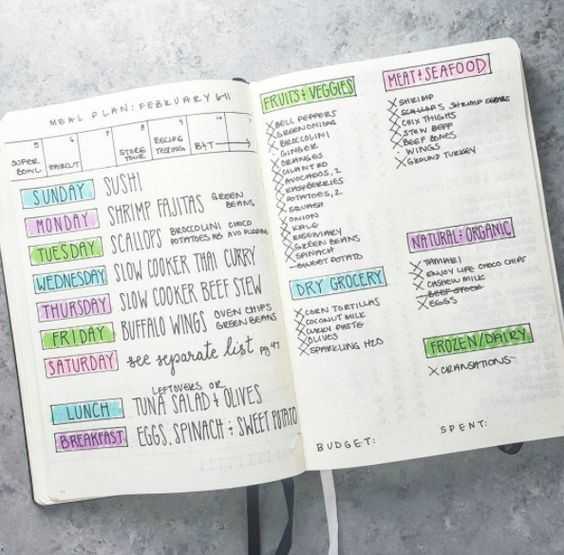 MEAL PLAN: FEBRUARY 6-11
5 6 7 8 9 10
SUPER BOWL
HAIRCUT
STORE TOUR
RECIPE TESTING
SUNDAY SUSHI
MONDAY SHRIMP FAJITAS GREEN BEANS
TUESDAY SCALLOPS BROCCOLINI CHOCO
POTATOES AVO PUDDING
WEDNESDAY SLOW COOKER THAI CURRY
THURSDAY SLOW COOKER BEEF STEW
FRIDAY BUFFALO WINGS OVEN CHIPS
GREEN BEANS
SATURDAY see separate list pg 47
LEFTOVERS OR
LUNCH TUNA SALAD & OLIVES
BREAKFAST EGGS, SPINACH & SWEET POTATO
FRUITS & VEGGIES
BELL PEPPERS
GREEN ONION
BROCCOLINI
GINGER
ORANGES
CILANTRO
AVOCADOS, 2
RASPBERRIES
POTATOES, 2
SQUASH
ONION
KALE
ROSEMARY
GREEN BEANS
SPINACH
SWEET POTATO
DRY GROCERY
CORN TORTILLAS
COCONUT MILK
CURRY PASTE
OLIVES
SPARKLING H2O
BUDGET:
MEAT & SEAFOOD
SHRIMP
SCALLOPS SHRIMP
CHIX THIGHS
STEW BEEF
BEEF BONES
WINGS
GROUND TURKEY
NATURAL & ORGANIC
TAMARI
ENJOY LIFE CHOCO CHIPS
CASHEW MILK
BEEF STOCK
EGGS
FROZEN/DAIRY
SPENT: